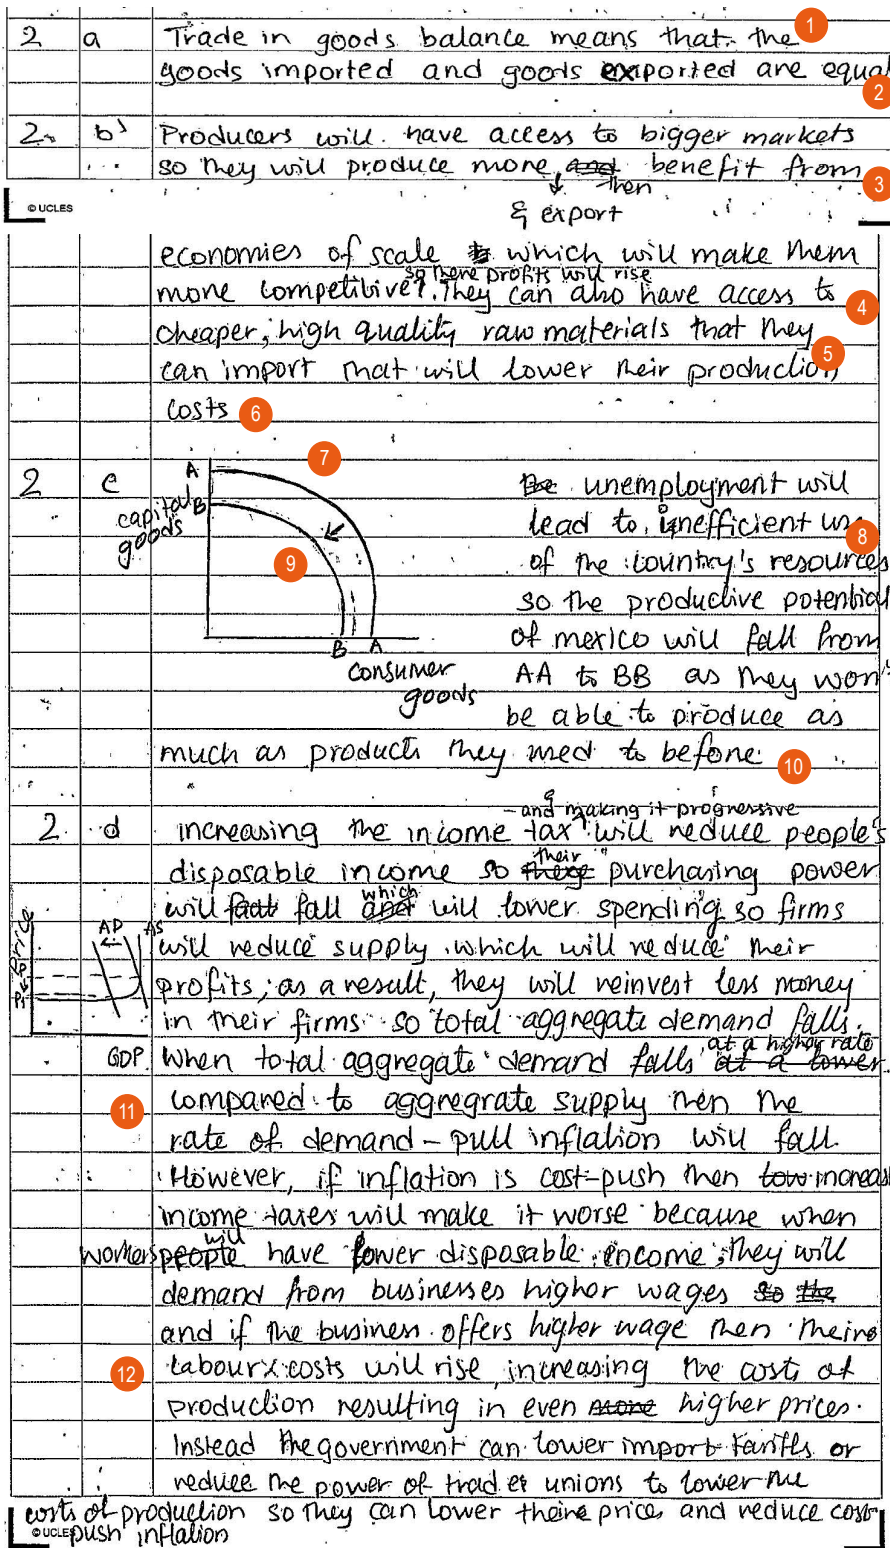 1
2 a Trade in goods balance means that the
goods imported and goods exported are equal
2
2. b) Producers will have access to bigger markets
so they will produce more, and then benefit from
3
© UCLES
& export
economies of scale which will make them
so there profits will rise
more competitive. They can also have access to
4
cheaper, high quality raw materials that they
5
can import that will lower their production
costs 6
7
2 c A the unemployment will
capital B lead to inefficient use
goods 8
9 of the country's resources
so the productive potential
of mexico will fall from
B A
consumer AA to BB as they won't
goods be able to produce as
much as products they used to before.
10
- and making it progressive
2. d increasing the income tax will reduce people's
disposable income so there their purchasing power
will fall and which will lower spending so firms
Price AD AS will reduce supply which will reduce their
P profits, as a result, they will reinvest less money
in their firms so total aggregate demand falls.
at a higher rate
GDP. When total aggregate demand falls at a lower
11 compared to aggregrate supply then the
rate of demand-pull inflation will fall.
However, if inflation is cost-push then low increase
income taxes will make it worse because when
workers people will have lower disposable income, they will
demand from businesses higher wages so the
and if the business offers higher wage then theire
12 labour costs will rise, increasing the costs of
production resulting in even more higher prices.
Instead the government can lower import tariffs or
reduce the power of trade unions to lower the
costs of production so they can lower theire prices and reduce cost-
© UCLES push inflation